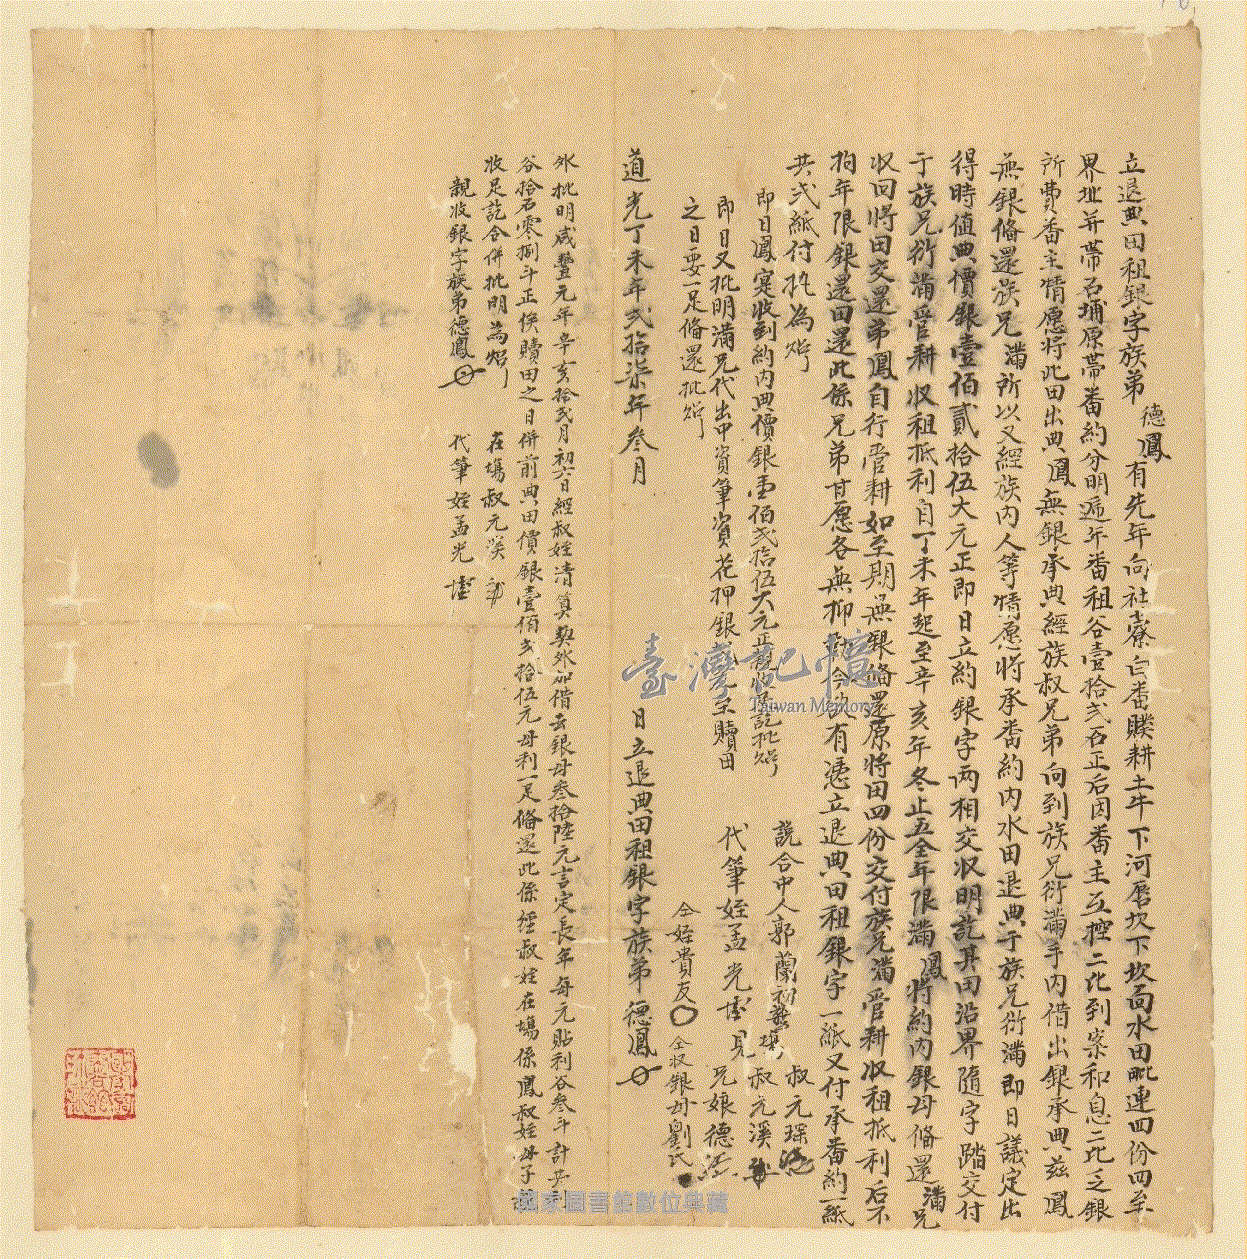 立退典田租銀字族弟德鳳有先年向社寮白番贌耕土牛下河唇坎下坎面水田毗連四份四至
界址并帶石埔原帶番約分明遞年番租谷壹拾弍石正后因番主互控二比到案和息二比乏銀
所費番主情愿將此田出典鳳無銀承典經族叔兄弟向到族兄衍滿手內借出銀承典茲鳳
無銀俻還族兄滿所以又經族內人等情愿將承番約內水田退典于族兄衍滿即日議定出
得時值典價銀壹佰貳拾伍大元正即日立約銀字両相交収明訖其田沿界隨字踏交付
于族兄衍滿管耕収租抵利自丁未年起至辛亥年冬止五全年限滿鳳將約內銀母俻還滿兄
収回將田交還弟鳳自行管耕如至期無銀俻還原將田四份交付族兄滿管耕収租抵利后不
拘年限銀還田還此係兄弟甘愿各無抑勒今欲有憑立退典田租銀字一紙又付承番約一紙
共弍紙付执為炤
即日鳳寔收到約內典價銀壹佰弍拾伍大元正親收足訖批炤
即日又批明滿兄代出中資筆資花押銀 元至贖田
之日要一足俻還批炤
說合中人郭蘭初
在塲叔元琛
叔元溪
兄娘德
代筆姪孟光 見
仝姪貴友
仝収銀母劉氏
道光丁未年弍拾柒年叁月 日立退典田租銀字族弟德鳳
外批明咸豐元年辛亥拾弍月初六日經叔姪清算契外加借去銀母叁拾陸元言定長年每元貼利谷叁斗計共
谷拾石零捌斗正俟贖田之日併前典田價銀壹佰弍拾伍元母利一足俻還此係經叔姪在塲係鳳叔姪母子
收足訖合併批明為炤
在塲叔元溪
親收銀字族弟德鳳
代筆姪孟光
臺灣記憶
Taiwan Memory
國家圖書館數位典藏